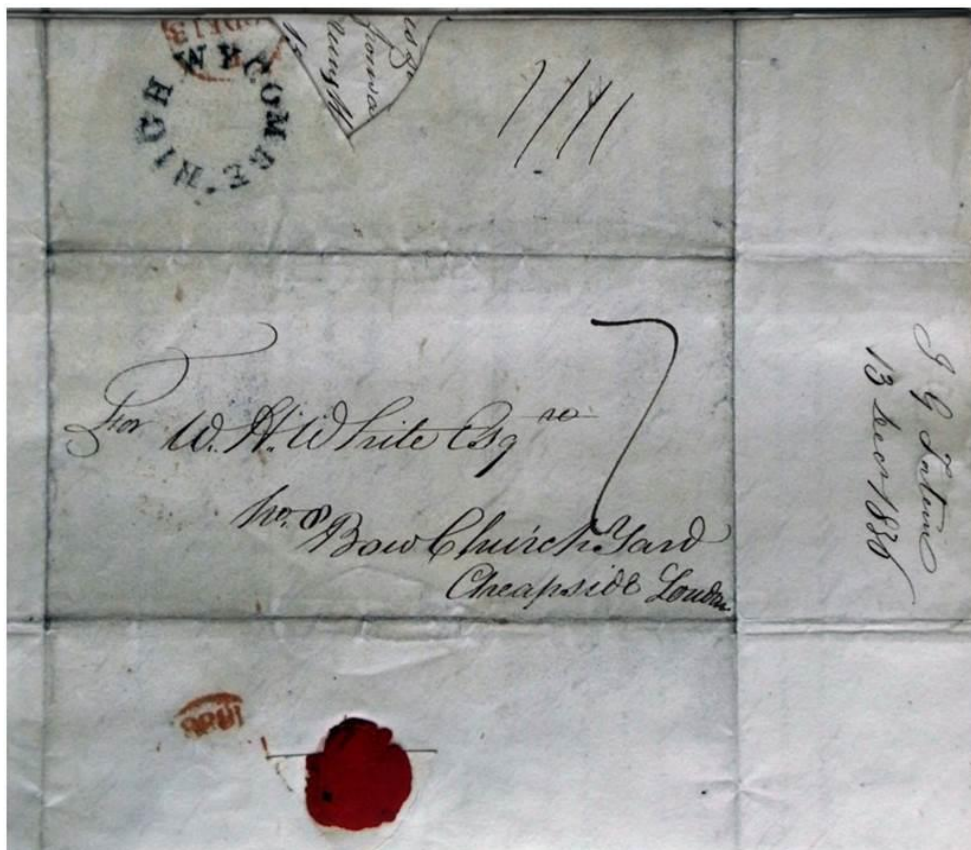 DE 13
HIGH WYCOMBE
7
For W. H. White Esqre
No. 8 Bow Church Yard
Cheapside London
J G Tatem
13 Decr 1836
1836